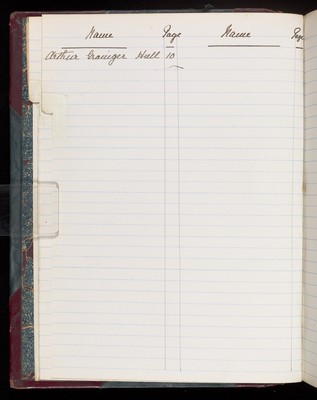 Name Page Name Page
Arthur Grainger Hall 10